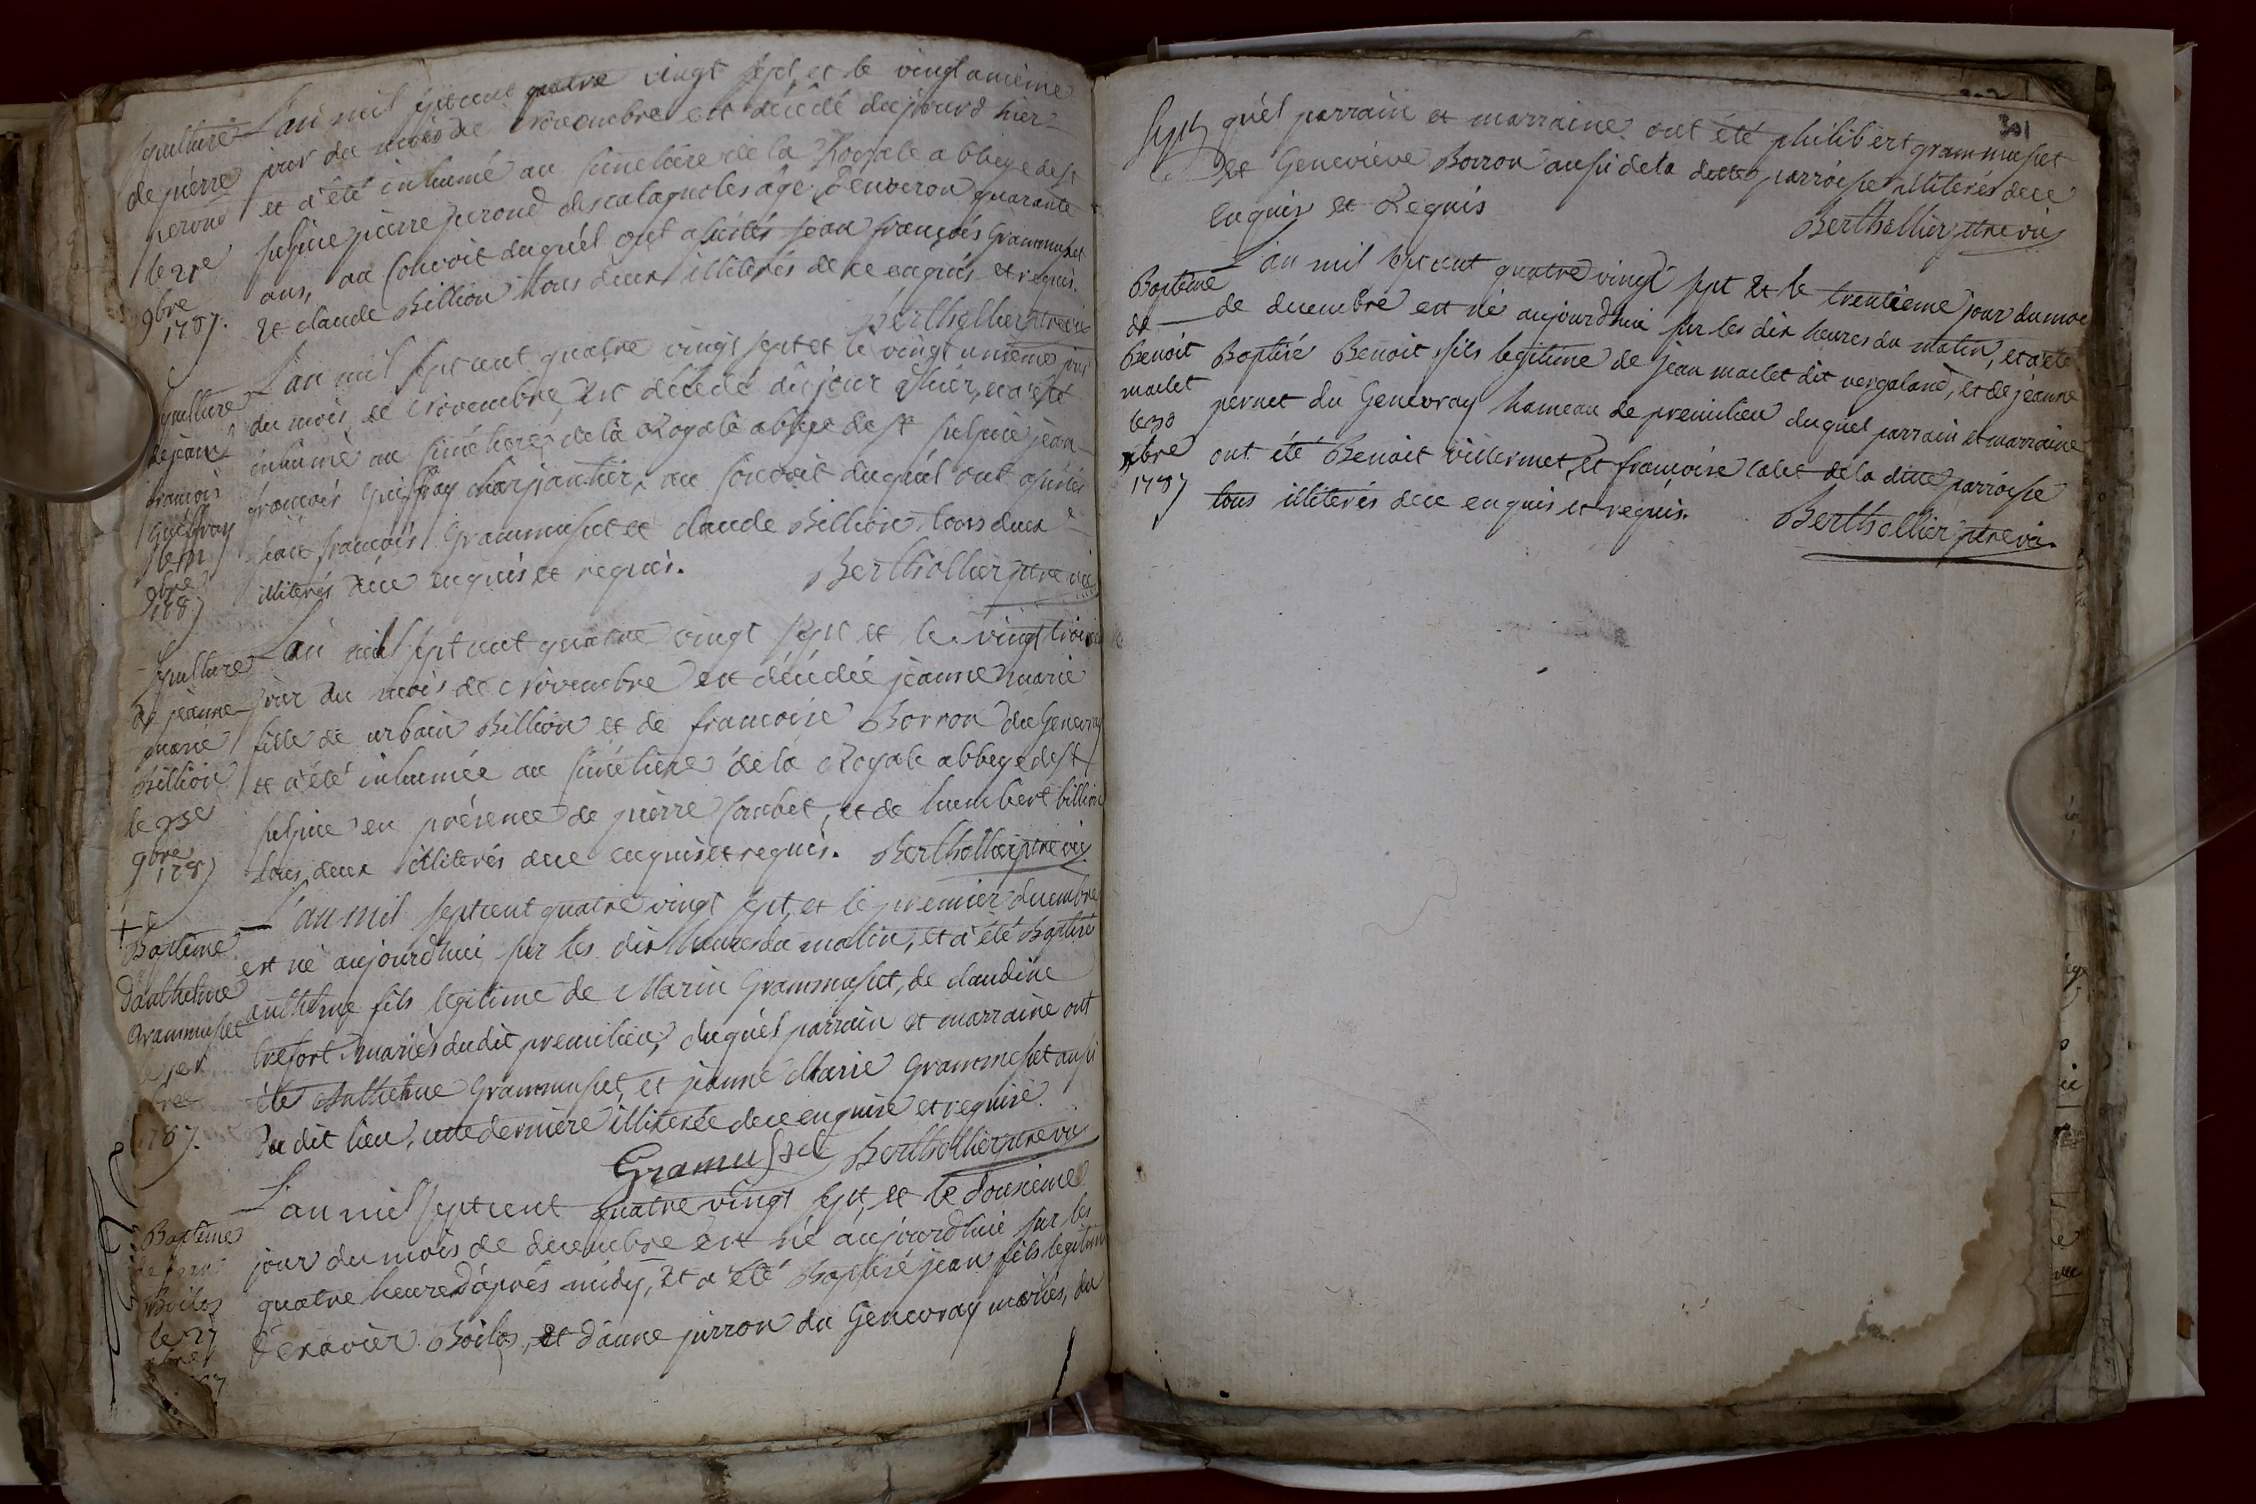 Sepulture
de pierre
peroud
le 21e
9bre
1787.
L'an mil sept cent quatre vingt sept et le vingt unième
jour du mois de Novembre est décédé du jourd'hier
et a été inhumé au simetière de la Royale abbeye de st
sulpice pierre peroud des catagnoles âgé d'environ quarante
ans, au convoit duquel ont assistés jean françois Grammusset
et claude Billion tous deux illiterés de ce enquis et requis.
Berthollier ptre vic
Sepulture
de jean
françois
Guiffray
le 21
9bre
1787
L'an mil sept cent quatre vingt sept et le vingt unieme jour
du mois de Novembre, est décédé du jour d'hier, et a été
inhumé au simétiere de la Royale abbeye de st sulpice jean
françois Guiffray charpantier, au convoit duquel ont assistés
jean françois Grammusset et claude Billion, tous deux
illiterés de ce enquis et requis.
Berthollier ptre vic
Sepulture
de jeanne
marie
Billion
le 23e
9bre
1787
L'an mil sept cent quatre vingt sept et le vingt trois
jour du mois de Novembre est décédée jeanne marie
fille de urbain Billion et de françoise Borron du Genevray
et a été inhumée au simétiere de la Royale abbeye de st
sulpice en présence de pierre Courbet, et de humbert billion
tous deux illiterés de ce enquis et requis. Berthollier ptre vic
+
Baptême
d'anthelme
Grammusset
le 1er
1787.
L'an mil sept cent quatre vingt sept, et le premier decembre
est né aujourdhui sur les dix heures du matin, et a été Baptisé
anthelme fils legitime de Marin Grammusset, de claudine
trefort mariés dudit premilieu, duquel parrain et marraine ont
été Anthelme Grammusset, et jeanne Marie Grammusset aussi
du dit lieu, cette dernière illiterée de ce enquise et requise.
Gramussel Berthollier ptre vic
Baptême
de jean
Boiles
le 27
L'an mil sept cent quatre vingt sept, et le dousieme
jour du mois de decembre est né aujourdhui sur les
quatre heures d'après midy, et a été Baptisé jean fils legitime
de xavier Boiles, et d'anne pirron du Genevray mariés, du
301
quel parrain et marraine ont été philibert grammusset
et Geneviève Borron aussi de la ditte parroisse illiterés de ce
enquis et Requis
Berthollier ptre vic
Baptême
de
Benoit
maclet
le 30
xbre
1787
L'an mil sept cent quatre vingt sept et le trentieme jour du mois
de decembre est né aujourdhui sur les dix heures du matin, et a été
Baptisé Benoit fils legitime de jean maclet dit vergaland, et de jeanne
pernet du Genevray hameau de premilieu duquel parrain et marraine
ont été Benoit villermet, et françoise Calet de la ditte parroisse
tous illiterés de ce enquis et requis.
Berthollier ptre vic.